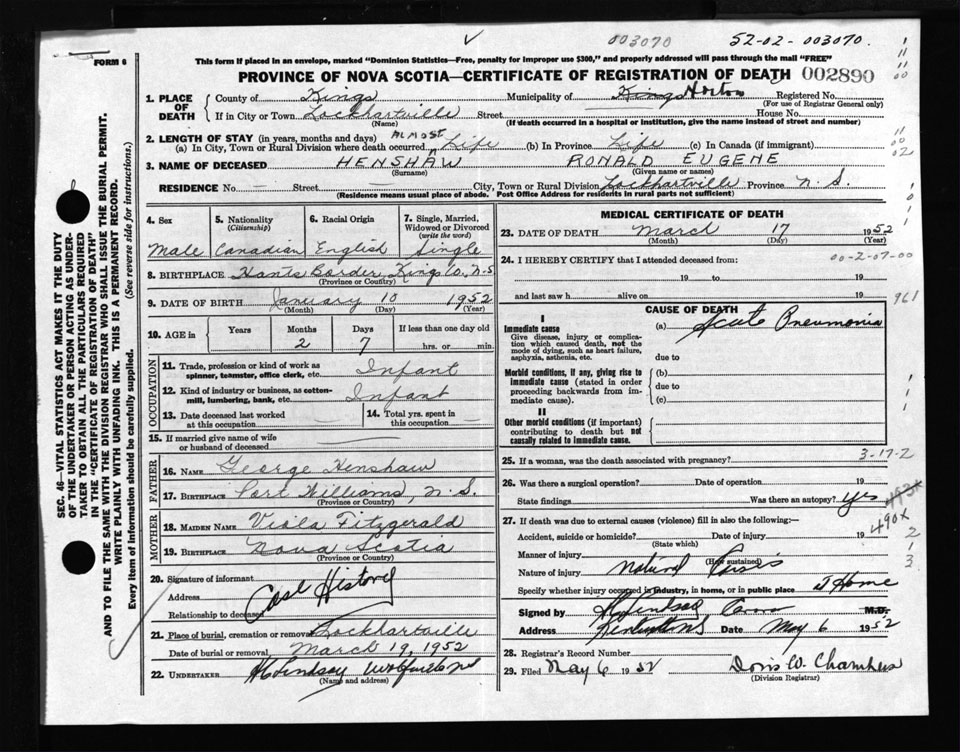 003070 52-02-003070.
FORM 6
This form if placed in an envelope, marked "Dominion Statistics—Free, penalty for improper use $300," and properly addressed will pass through the mail "FREE"
PROVINCE OF NOVA SCOTIA—CERTIFICATE OF REGISTRATION OF DEATH 002890
1. PLACE OF DEATH
County of Kings Municipality of Kings Horton Registered No.
(For use of Registrar General only)
If in City or Town Lockhartville Street House No.
(Name) (If death occurred in a hospital or institution, give the name instead of street and number)
2. LENGTH OF STAY (in years, months and days)
(a) In City, Town or Rural Division where death occurred ALMOST Life (b) In Province Life (c) In Canada (if immigrant)
3. NAME OF DECEASED HENSHAW RONALD EUGENE
(Surname) (Given name or names)
RESIDENCE No — Street — City, Town or Rural Division Lockhartville Province N.S.
(Residence means usual place of abode. Post Office Address for residents in rural parts not sufficient)
4. Sex Male
5. Nationality (Citizenship) Canadian
6. Racial Origin English
7. Single, Married, Widowed or Divorced (write the word) Single
8. BIRTHPLACE Hants Border, Kings Co, N.S
(Province or Country)
9. DATE OF BIRTH January 10 1952
(Month) (Day) (Year)
10. AGE in Years Months Days If less than one day old
2 7 hrs. or min.
OCCUPATION
11. Trade, profession or kind of work as spinner, teamster, office clerk, etc. Infant
12. Kind of industry or business, as cotton-mill, lumbering, bank, etc. Infant
13. Date deceased last worked at this occupation —
14. Total yrs. spent in this occupation —
15. If married give name of wife or husband of deceased —
FATHER
16. NAME George Henshaw
17. BIRTHPLACE Port Williams, N.S.
(Province or Country)
MOTHER
18. MAIDEN NAME Viola Fitzgerald
19. BIRTHPLACE Nova Scotia
(Province or Country)
20. Signature of informant
Address Case History
Relationship to deceased
21. Place of burial, cremation or removal Lockhartville
Date of burial or removal March 19, 1952
22. UNDERTAKER Lindsay Wolfville NS
(Name and address)
MEDICAL CERTIFICATE OF DEATH
23. DATE OF DEATH March 17 1952
(Month) (Day) (Year)
24. I HEREBY CERTIFY that I attended deceased from: 00-2-07-00
19 to 19
and last saw h alive on 19 961
CAUSE OF DEATH
I
Immediate cause
Give disease, injury or complication which caused death, not the mode of dying, such as heart failure, asphyxia, asthenia, etc.
(a) Acute Pneumonia
due to
Morbid conditions, if any, giving rise to immediate cause (stated in order proceeding backwards from immediate cause).
(b)
due to
(c)
II
Other morbid conditions (if important) contributing to death but not causally related to immediate cause.
25. If a woman, was the death associated with pregnancy? 3-17-2
26. Was there a surgical operation? Date of operation 19
State findings Was there an autopsy? Yes
490X
27. If death was due to external causes (violence) fill in also the following:—
Accident, suicide or homicide? Date of injury 19
(State which)
Manner of injury
(How sustained)
Nature of injury Natural
Specify whether injury occurred in industry, in home, or in public place at Home
Signed by M.D.
Address Date May 6 1952
28. Registrar's Record Number
29. Filed May 6 1952 Doris W. Chambers
(Division Registrar)
SEC. 46—VITAL STATISTICS ACT MAKES IT THE DUTY
OF THE UNDERTAKER OR PERSON ACTING AS UNDER-
TAKER TO OBTAIN ALL THE PARTICULARS REQUIRED
IN THE "CERTIFICATE OF REGISTRATION OF DEATH"
AND TO FILE THE SAME WITH THE DIVISION REGISTRAR WHO SHALL ISSUE THE BURIAL PERMIT.
WRITE PLAINLY WITH UNFADING INK. THIS IS A PERMANENT RECORD.
Every item of information should be carefully supplied. (See reverse side for instructions.)